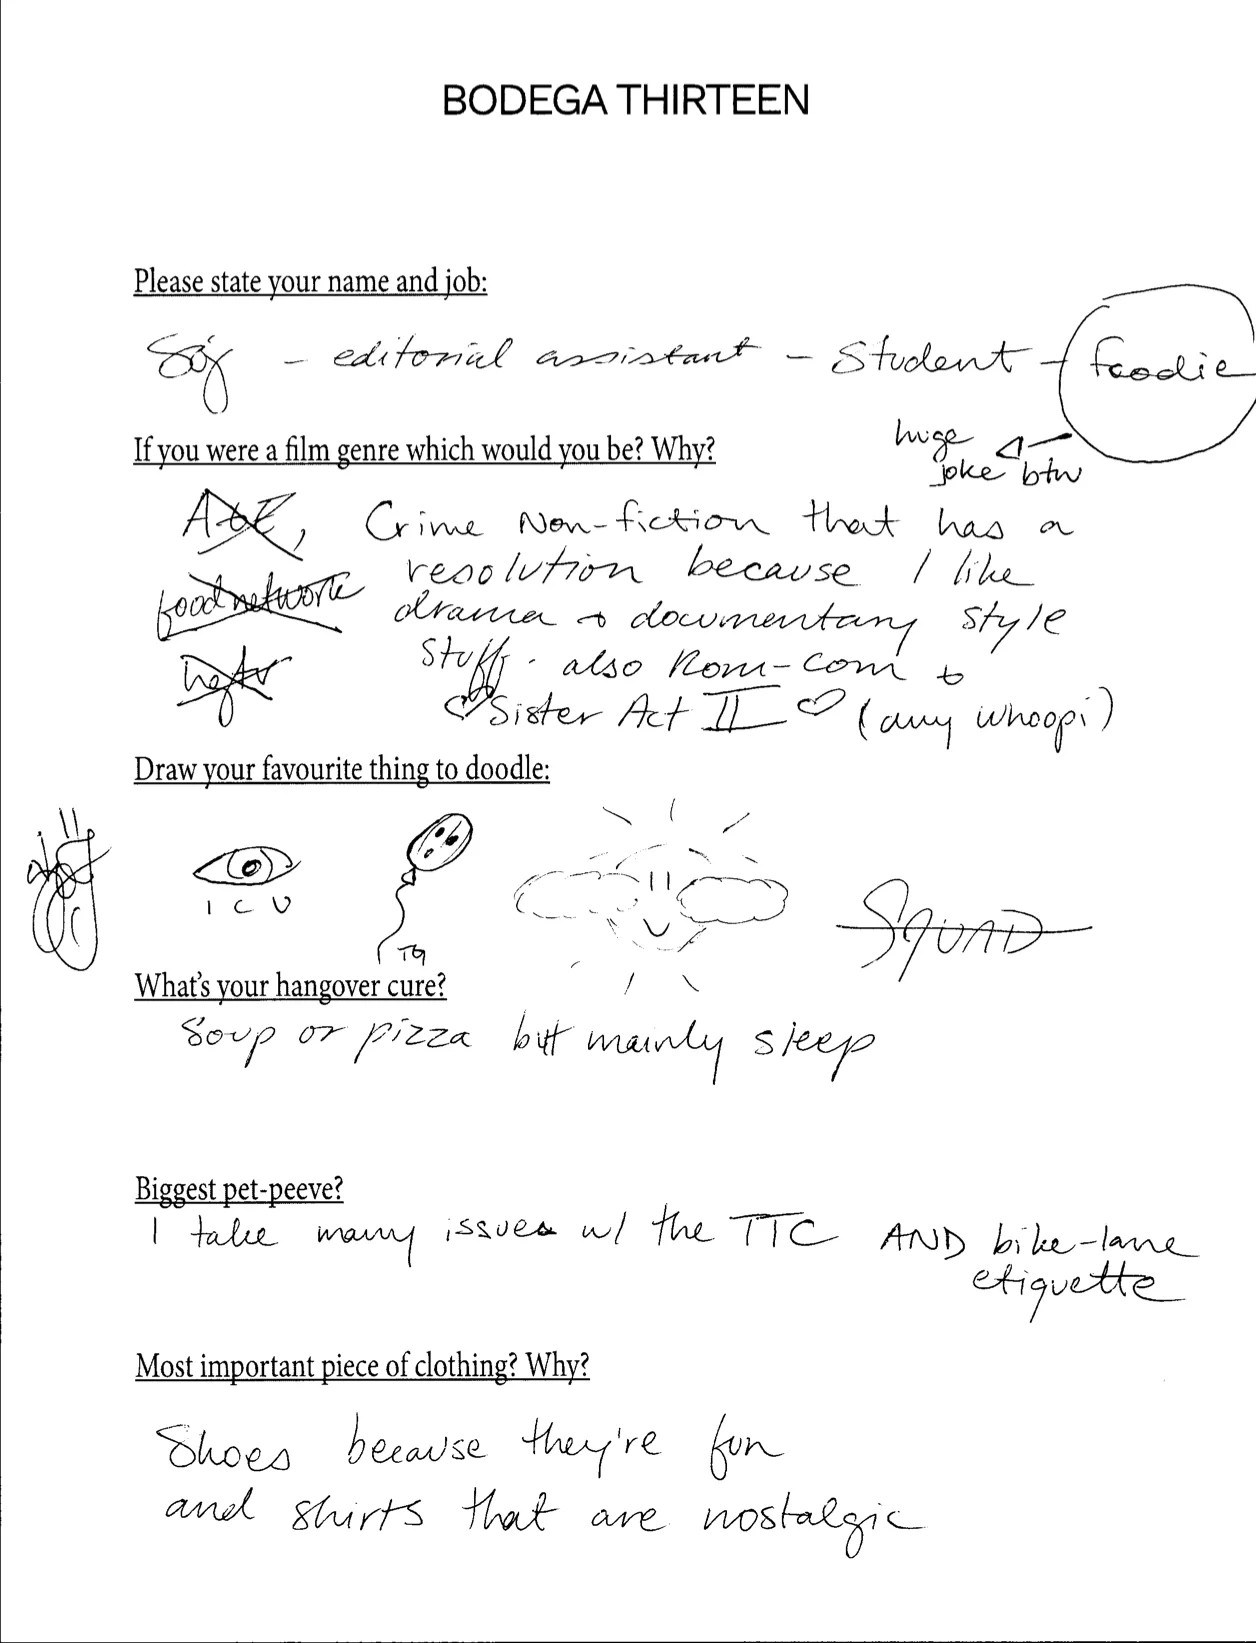 BODEGA THIRTEEN
Please state your name and job:
– editorial assistant – student – foodie
huge
joke btw
If you were a film genre which would you be? Why?
A&E, Crime Non-fiction that has a
food network resolution because I like
drama + documentary style
hgtv stuff. also Rom-com +
Sister Act II (any whoopi)
Draw your favourite thing to doodle:
I C U
SQUAD
What's your hangover cure?
Soup or pizza but mainly sleep
Biggest pet-peeve?
I take many issues w/ the TTC AND bike-lane
etiquette
Most important piece of clothing? Why?
Shoes because they're fun
and shirts that are nostalgic